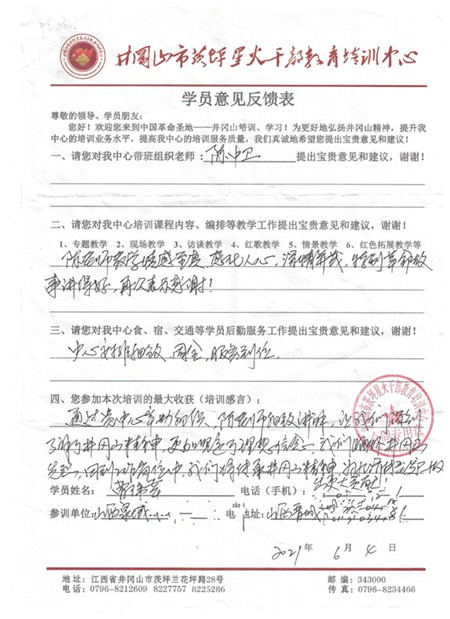 井冈山市茨坪星火干部教育培训中心
学员意见反馈表
尊敬的领导、学员朋友:
您好!欢迎您来到中国革命圣地——井冈山培训、学习!为更好地弘扬井冈山精神,提升我
中心的培训业务水平,提高我中心的培训服务质量,我们真诚地希望您提出宝贵意见和建议,谢谢!
一、请您对我中心带班组织老师: 陈中卫 提出宝贵意见和建议,谢谢!
二、请您对我中心培训课程内容、编排等教学工作提出宝贵意见和建议,谢谢!
1、专题教学 2、现场教学 3、访谈教学 4、红歌教学 5、情景教学 6、红色拓展教学等
陈老师教学 感 人心,深情并茂,特别革命故
事讲得好,再次表示感谢!
三、请您对我中心食、宿、交通等学员后勤服务工作提出宝贵意见和建议,谢谢!
中心安排细致、周全,服务到位.
四、您参加本次培训的最大收获(培训感言):
通过贵中心 陈老师细致讲解,让我们深刻
了解了井冈山精神,更加坚定了理想信念,我们 井冈山
回到工作岗位中,我们将传承井冈山精神, 做
学员姓名: 电话(手机):
参训单位: 山西 电 地址: 山西
2021年 6月 4日
地址:江西省井冈山市茨坪兰花坪路28号 邮编:343000
电话:0796-8212609 8227757 8225286 传真:0796-8234466